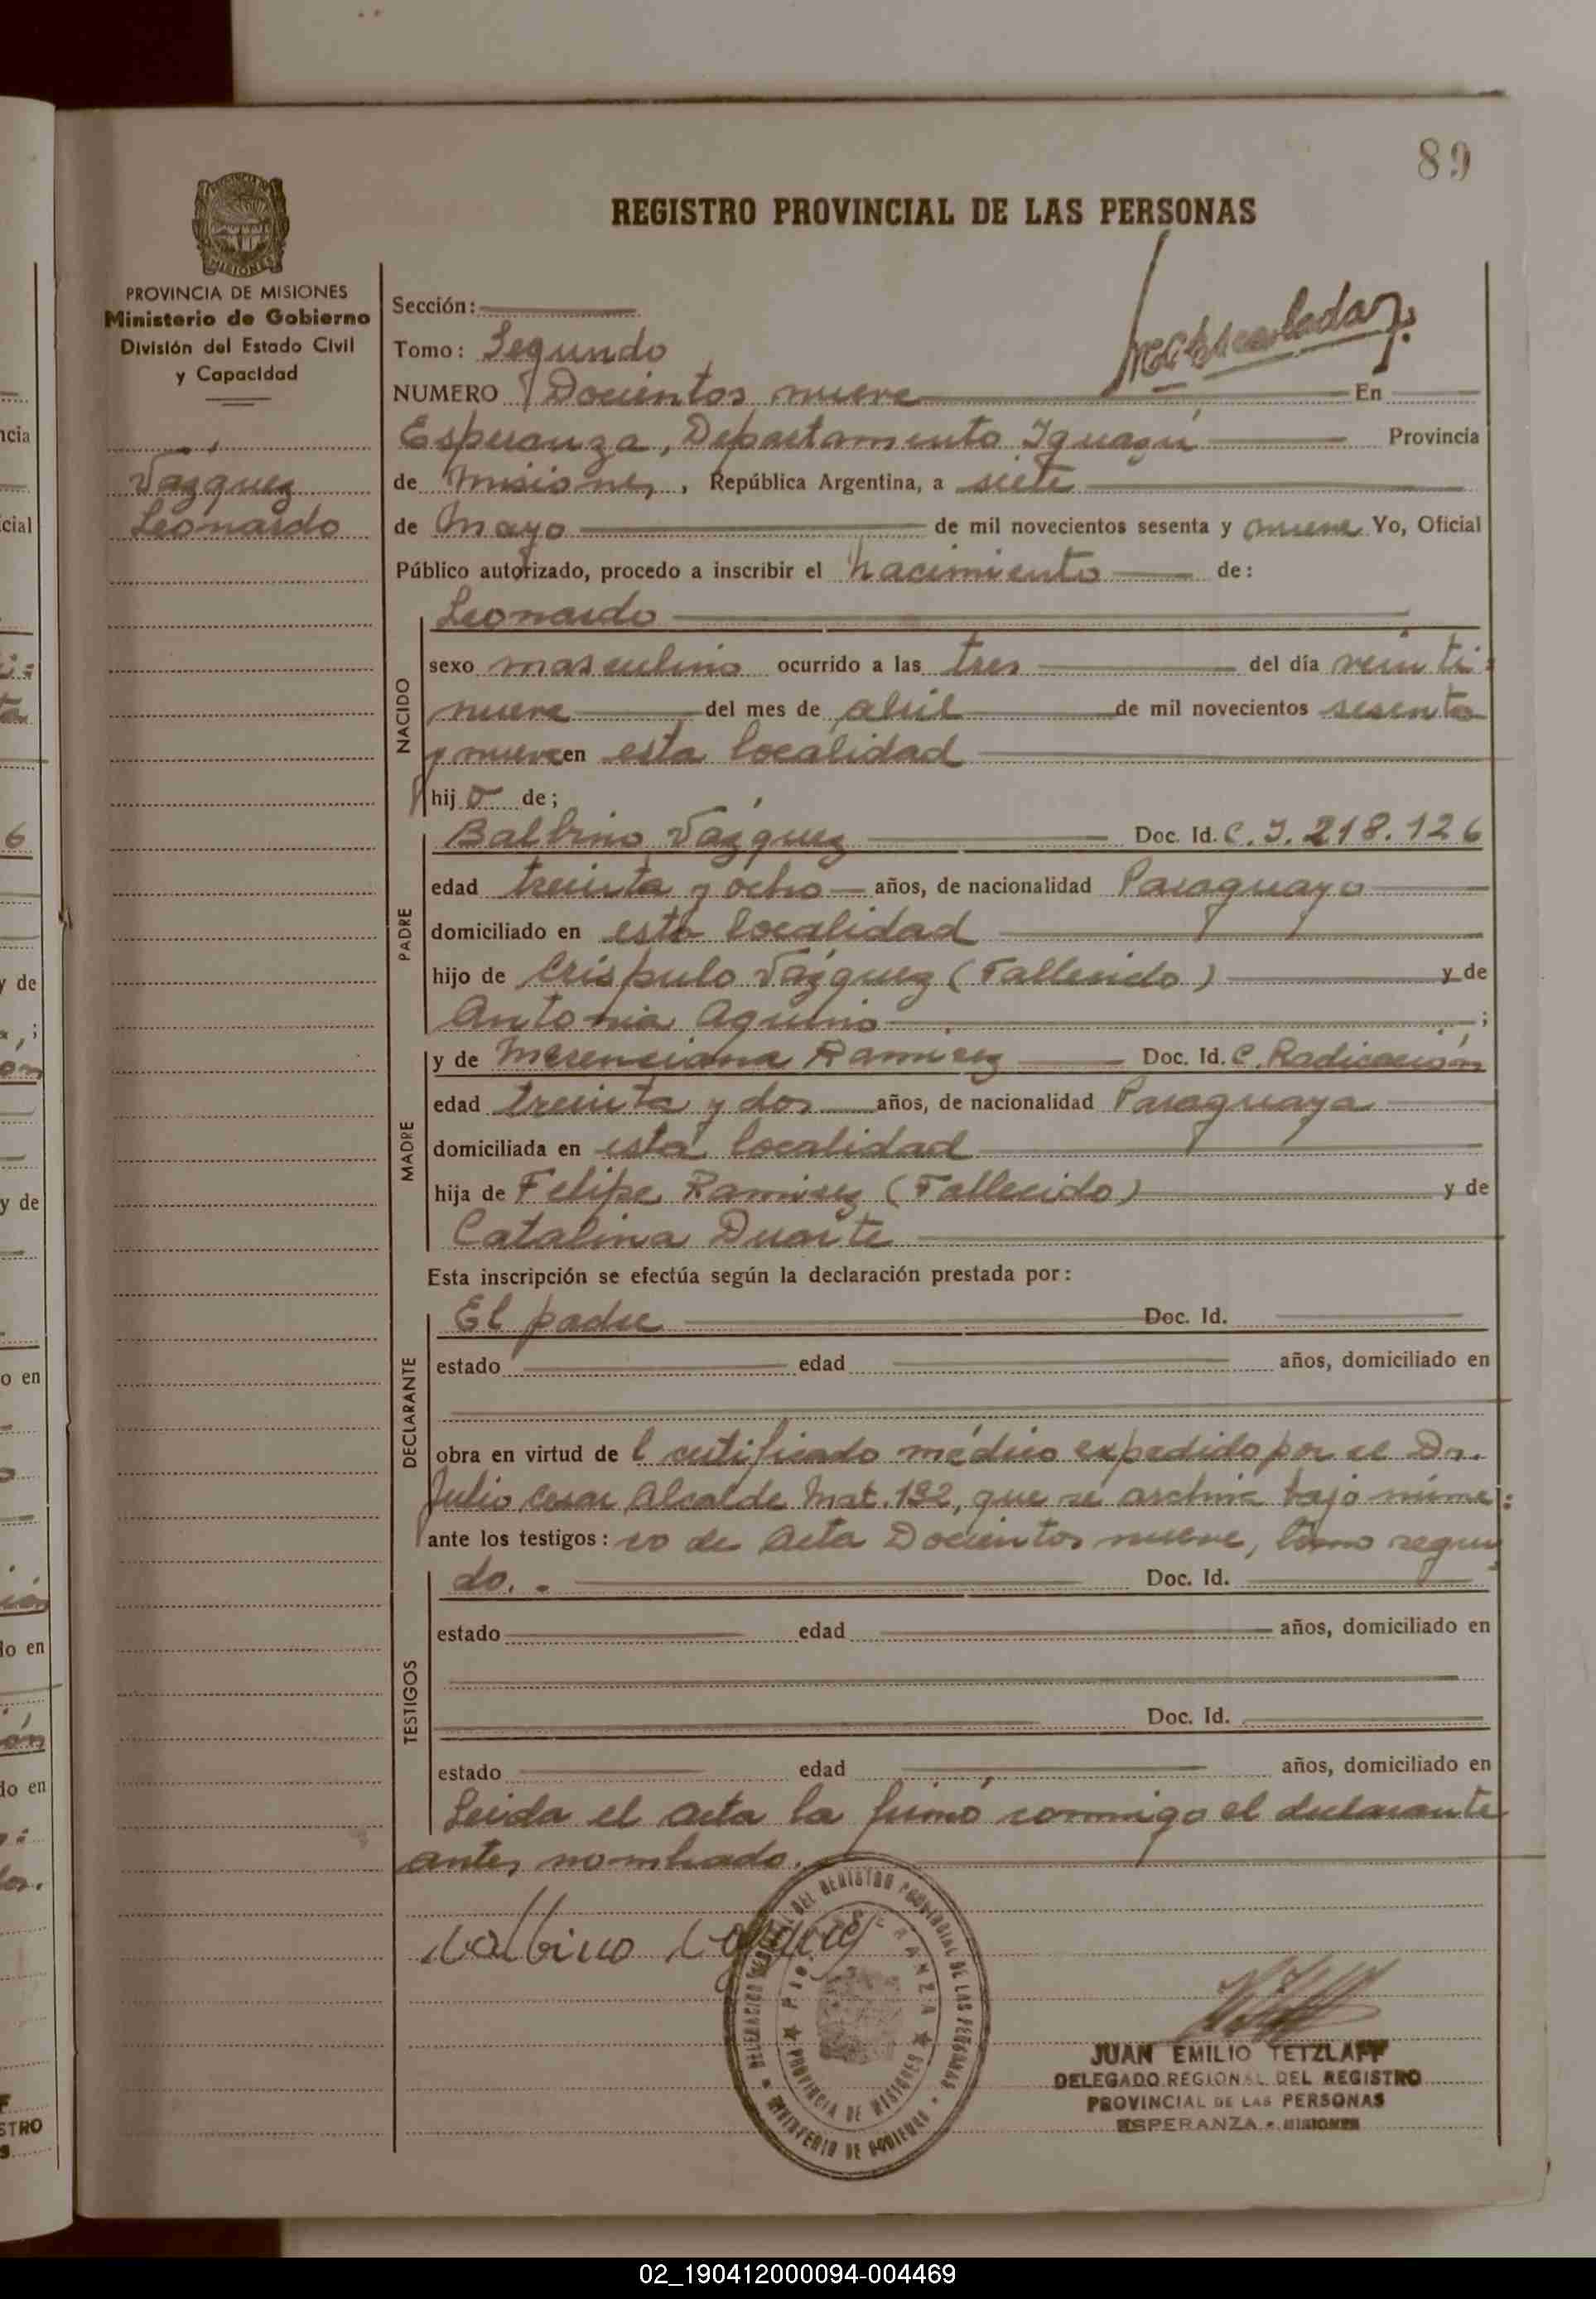 89
REGISTRO PROVINCIAL DE LAS PERSONAS
MISIONES
PROVINCIA DE MISIONES
Ministerio de Gobierno
División del Estado Civil
y Capacidad
Vázquez
Leonardo
Sección:
Tomo: Segundo
NUMERO Docientos nueve En
Esperanza, Departamento Iguazú Provincia
de Misiones, República Argentina, a siete
de Mayo de mil novecientos sesenta y nueve Yo, Oficial
Público autorizado, procedo a inscribir el nacimiento de:
NACIDO
Leonardo
sexo masculino ocurrido a las tres del día veinti-
nueve del mes de abril de mil novecientos sesenta
y nueve en esta localidad
hijo de;
PADRE
Balbino Vázquez Doc. Id. C. I. 218.126
edad treinta y ocho años, de nacionalidad Paraguayo
domiciliado en esta localidad
hijo de Críspulo Vázquez (Fallecido) y de
Antonia Aquino ;
MADRE
y de Merenciana Ramirez Doc. Id. C. Radicación
edad treinta y dos años, de nacionalidad Paraguaya
domiciliada en esta localidad
hija de Felipe Ramirez (Fallecido) y de
Catalina Duarte
Esta inscripción se efectúa según la declaración prestada por:
DECLARANTE
El padre Doc. Id.
estado edad años, domiciliado en
obra en virtud de l certificado médico expedido por el Dr.
Julio Cesar Alcalde Mat. 192, que se archiva bajo núme-
ante los testigos: ro de Acta Docientos nueve, tomo segun
TESTIGOS
do. Doc. Id.
estado edad años, domiciliado en
Doc. Id.
estado edad años, domiciliado en
Leida el acta la firmó conmigo el declarante
antes nombrado.
Balbino Vazquez
DEL REGISTRO PROVINCIAL DE LAS PERSONAS
MINISTERIO DE GOBIERNO
PROVINCIA DE MISIONES
JUAN EMILIO TETZLAFF
DELEGADO REGIONAL DEL REGISTRO
PROVINCIAL DE LAS PERSONAS
ESPERANZA - MISIONES
02_190412000094-004469